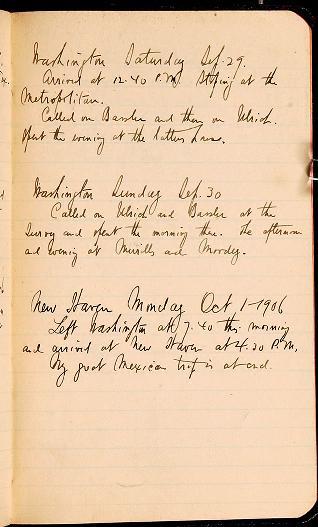 Washington Saturday Sep. 29.
Arrived at 12.40 P.M. Stoping at the
Metropolitan.
Called on Bassler and then on Ulrich.
Spent the evening at the latters house.
Washington Sunday Sep. 30
Called on Ulrich and Bassler at the
Survey and spent the morning there. The afternoon
and evening at Merrills and Moodey.
New Haven Monday Oct 1-1906
Left Washington at 7.40 this morning
and arrived at New Haven at 4.30 P.M.
My great Mexican trip is at end.